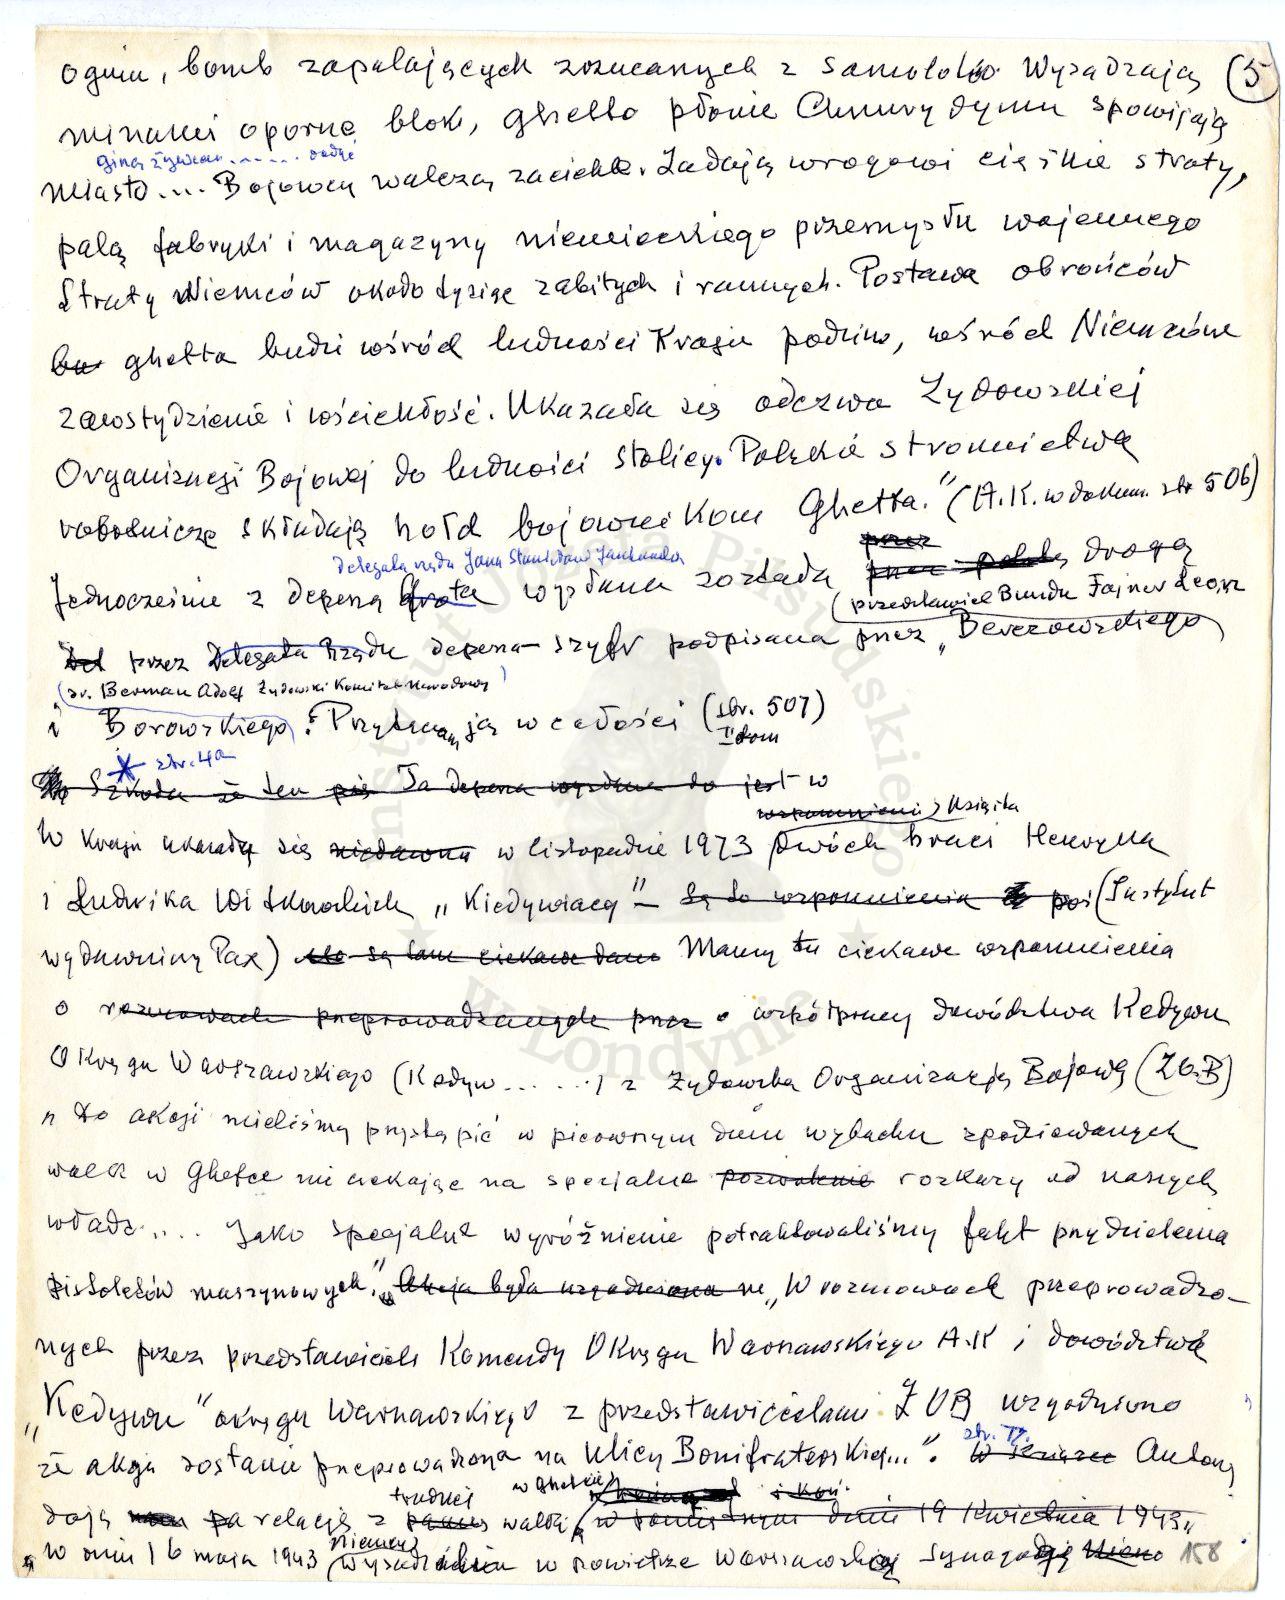 ognia, bomb zapalających zrzucanych z samolotów. Wysadzają (5)
minami oporne bloki, ghetto płonie Chmury dymu spowijają
giną żywcem ........ dodać
miasto.... Bojowcy walczą zaciekle. Zadają wrogowi ciężkie straty,
palą fabryki i magazyny niemieckiego przemysłu wojennego
Straty Niemców około tysiąc zabitych i rannych. Postawa obrońców
bu ghetta budzi wśród ludności Kraju podziw, wśród Niemców
zawstydzenie i wściekłość. Ukazała się odezwa Żydowskiej
Organizacji Bojowej do ludności stolicy. Polskie stronnictwa
robotnicze składają hołd bojownikom Ghetta." (A.K. w dokum. str 506)
Delegata rządu Jana Stanisława Jankowskiego przez
Jednocześnie z depeszą Grota wysłana została przez polską drogą
(przedstawiciel Bundu Fajner Leon
Del przez Delegata Rządu depesza szyfr podpisana przez „Berezowskiego
(dr. Berman Adolf Żydowski Komitet Narodowy)
i Borowskiego: Przytaczam ją w całości (str. 507)
II tom
* str. 4a
Szkoda że ten Ta depesza wysłana do jest w
wspomnienii) książka
W Kraju ukazała się niedawno w listopadzie 1973 dwóch braci Henryka
i Ludwika Witkowskich „Kiedywiacy" – Są to wspomnienia (Instytut
wydawniczy Pax) są tam ciekawe dane Mamy tu ciekawe wspomnienia
o rozmowach przeprowadzanych przez o współpracy dowództwa Kedywu
Okręgu Warszawskiego (Kedyw .......) z Żydowską Organizacją Bojową (ŻO.B)
„ Do akcji mieliśmy przystąpić w pierwszym dniu wybuchu spodziewanych
walk w Ghetcie nie czekając na specjalne pozwolenie rozkazy od naszych
władz.... Jako specjalne wyróżnienie potraktowaliśmy fakt przydzielenia
pistoletów maszynowych." Akcja była uzgodniona „W rozmowach przeprowadzo-
nych przez przedstawicieli Komendy Okręgu Warszawskiego A.K i dowództwa
„Kedywu" okręgu Warszawskiego z przedstawicielami ŻOB uzgodniono
str. 77.
że akcja zostanie przeprowadzona na ulicy Bonifraterskiej...". W książce Autorzy
trudnej w Ghetcie i koń.
dają relację z walki, w dniu 19 kwietnia 1943
Niemcy
„w dniu 16 maja 1943 (wysadzili w powietrze Warszawską Synagogę 158
Instytut Józefa Piłsudskiego
w Londynie